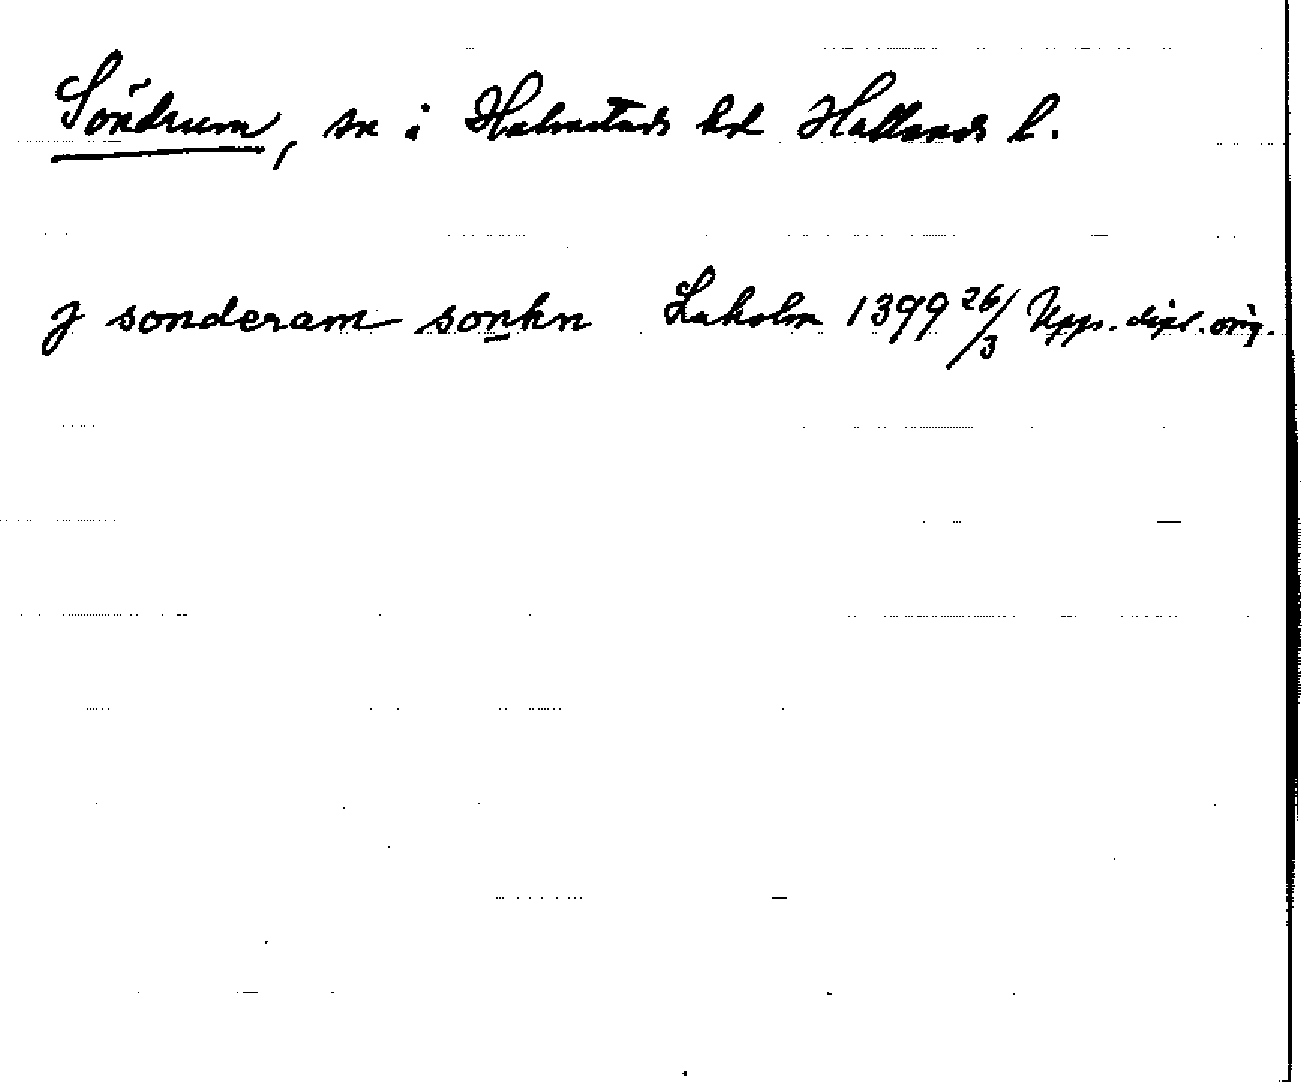 Söndrum, sn i Halmstads hd Hallands l.
J sonderam sonkn Laholm 1399 26/3 Upps. dipl. orig.